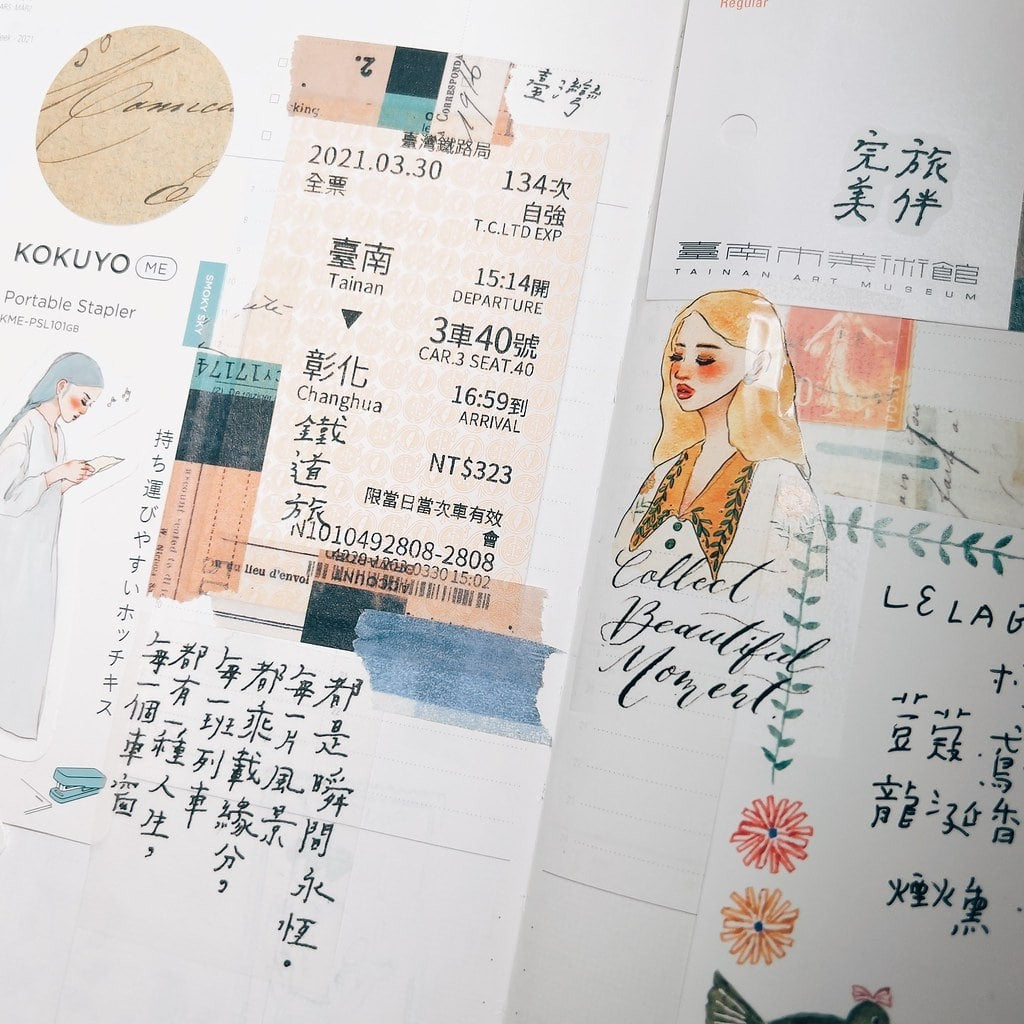 KOKUYO ME
Portable Stapler
KME-PSL101GB
持ち運びやすいホッチキス
SMOKY SKY
2.
CORRESPONDA
1916
臺灣
臺灣鐵路局
2021.03.30
134次
全票
自強
T.C.LTD EXP
臺南
Tainan
15:14開
DEPARTURE
3車40號
CAR.3 SEAT.40
彰化
Changhua
16:59到
ARRIVAL
鐵道旅
NT$323
限當日當次車有效
N1010492808-2808
du lieu d'envoi
ACCOUNT
每一個車窗
都有一種人生，
每一班列車
都乘載緣分，
每一片風景
都是瞬間永恆。
Regular
完美
旅伴
臺南市美術館
TAINAN ART MUSEUM
POSTES
Collect
Beautiful
Moment.
LELAB
荳蔻
鳶
龍涎香
煙火熏